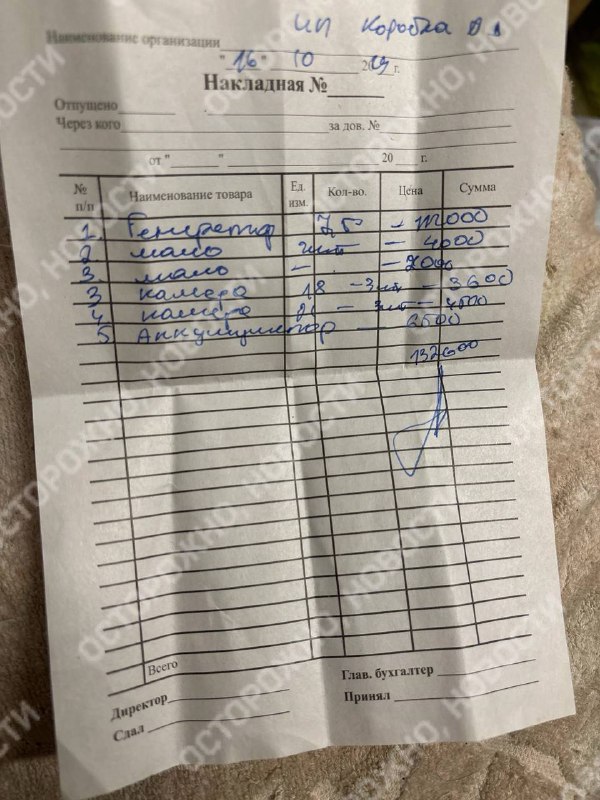 ИП Коробка В А
Наименование организации
"16" 10 2019 г.
Накладная №
Отпущено
Через кого за дов. №
от " " 20 г.
№ п/п Наименование товара Ед. изм. Кол-во. Цена Сумма
1. Генератор 7,5 - 112000
2 масло 2шт - 4000
3. масло - - 2000
3 камера 18 - 3шт - 3600
4 камера 20 - 3шт - 4500
5 Аккумулятор - 6500
132600
Всего
Директор Глав. бухгалтер
Сдал Принял
ОСТОРОЖНО, НОВОСТИ